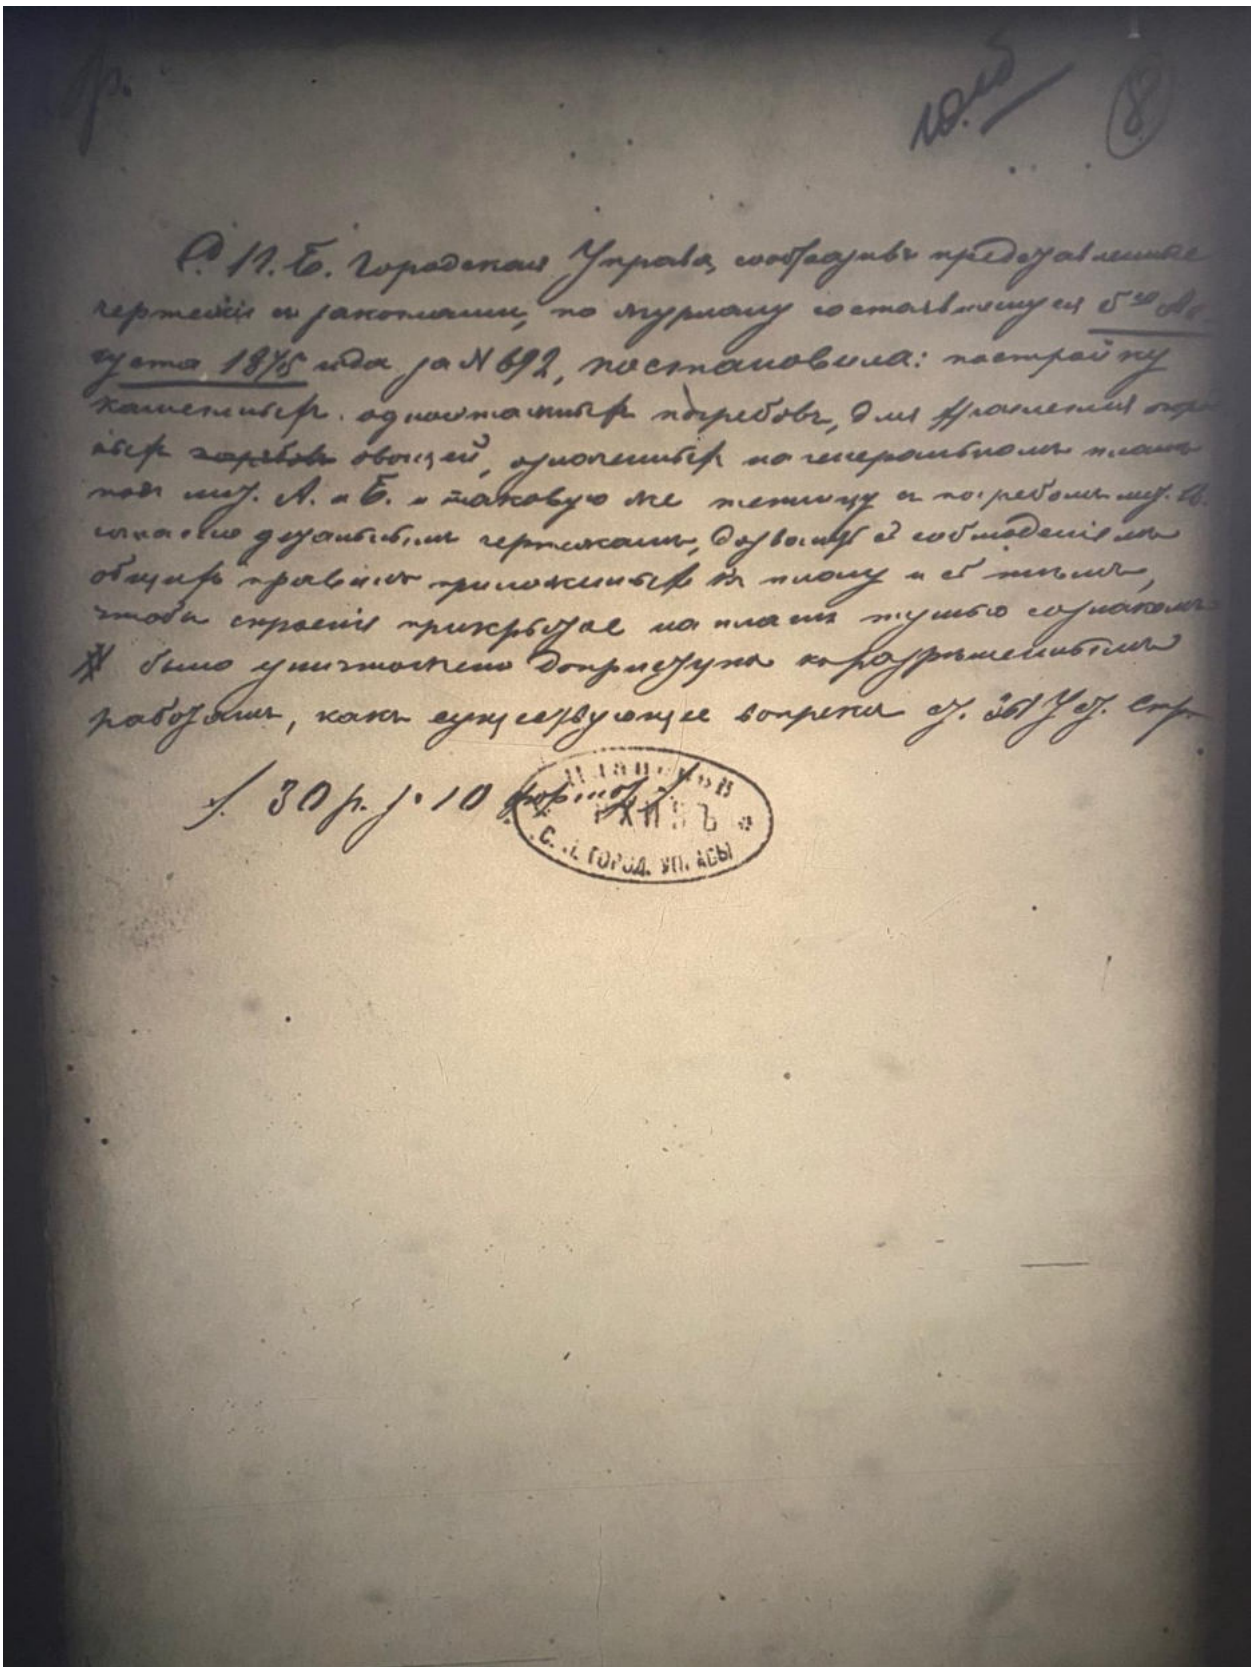 8
С. П. Б. Городская Управа, сообразивъ представленные
чертежи съ законами, по журналу состоявшемуся 5го Ав-
густа 1875 года за N 692, постановила: постройку
каменныхъ одноэтажныхъ погребовъ, для храненія
овощей, означенныхъ на генеральномъ планѣ
подъ лит. А. и Б. и таковую же теплицу съ погребомъ лит. В.
согласно детальнымъ чертежамъ, дозволить съ соблюденіемъ
общихъ правилъ приложенныхъ къ плану и съ тѣмъ,
чтобы строеніе прикрытое на планѣ тушью со знакомъ
X было уничтожено до приступа къ разрѣшеннымъ
работамъ, какъ существующее вопреки ст. Уст. Стр.
30 р. 10
С. П. ГОРОД. УПРАВЫ